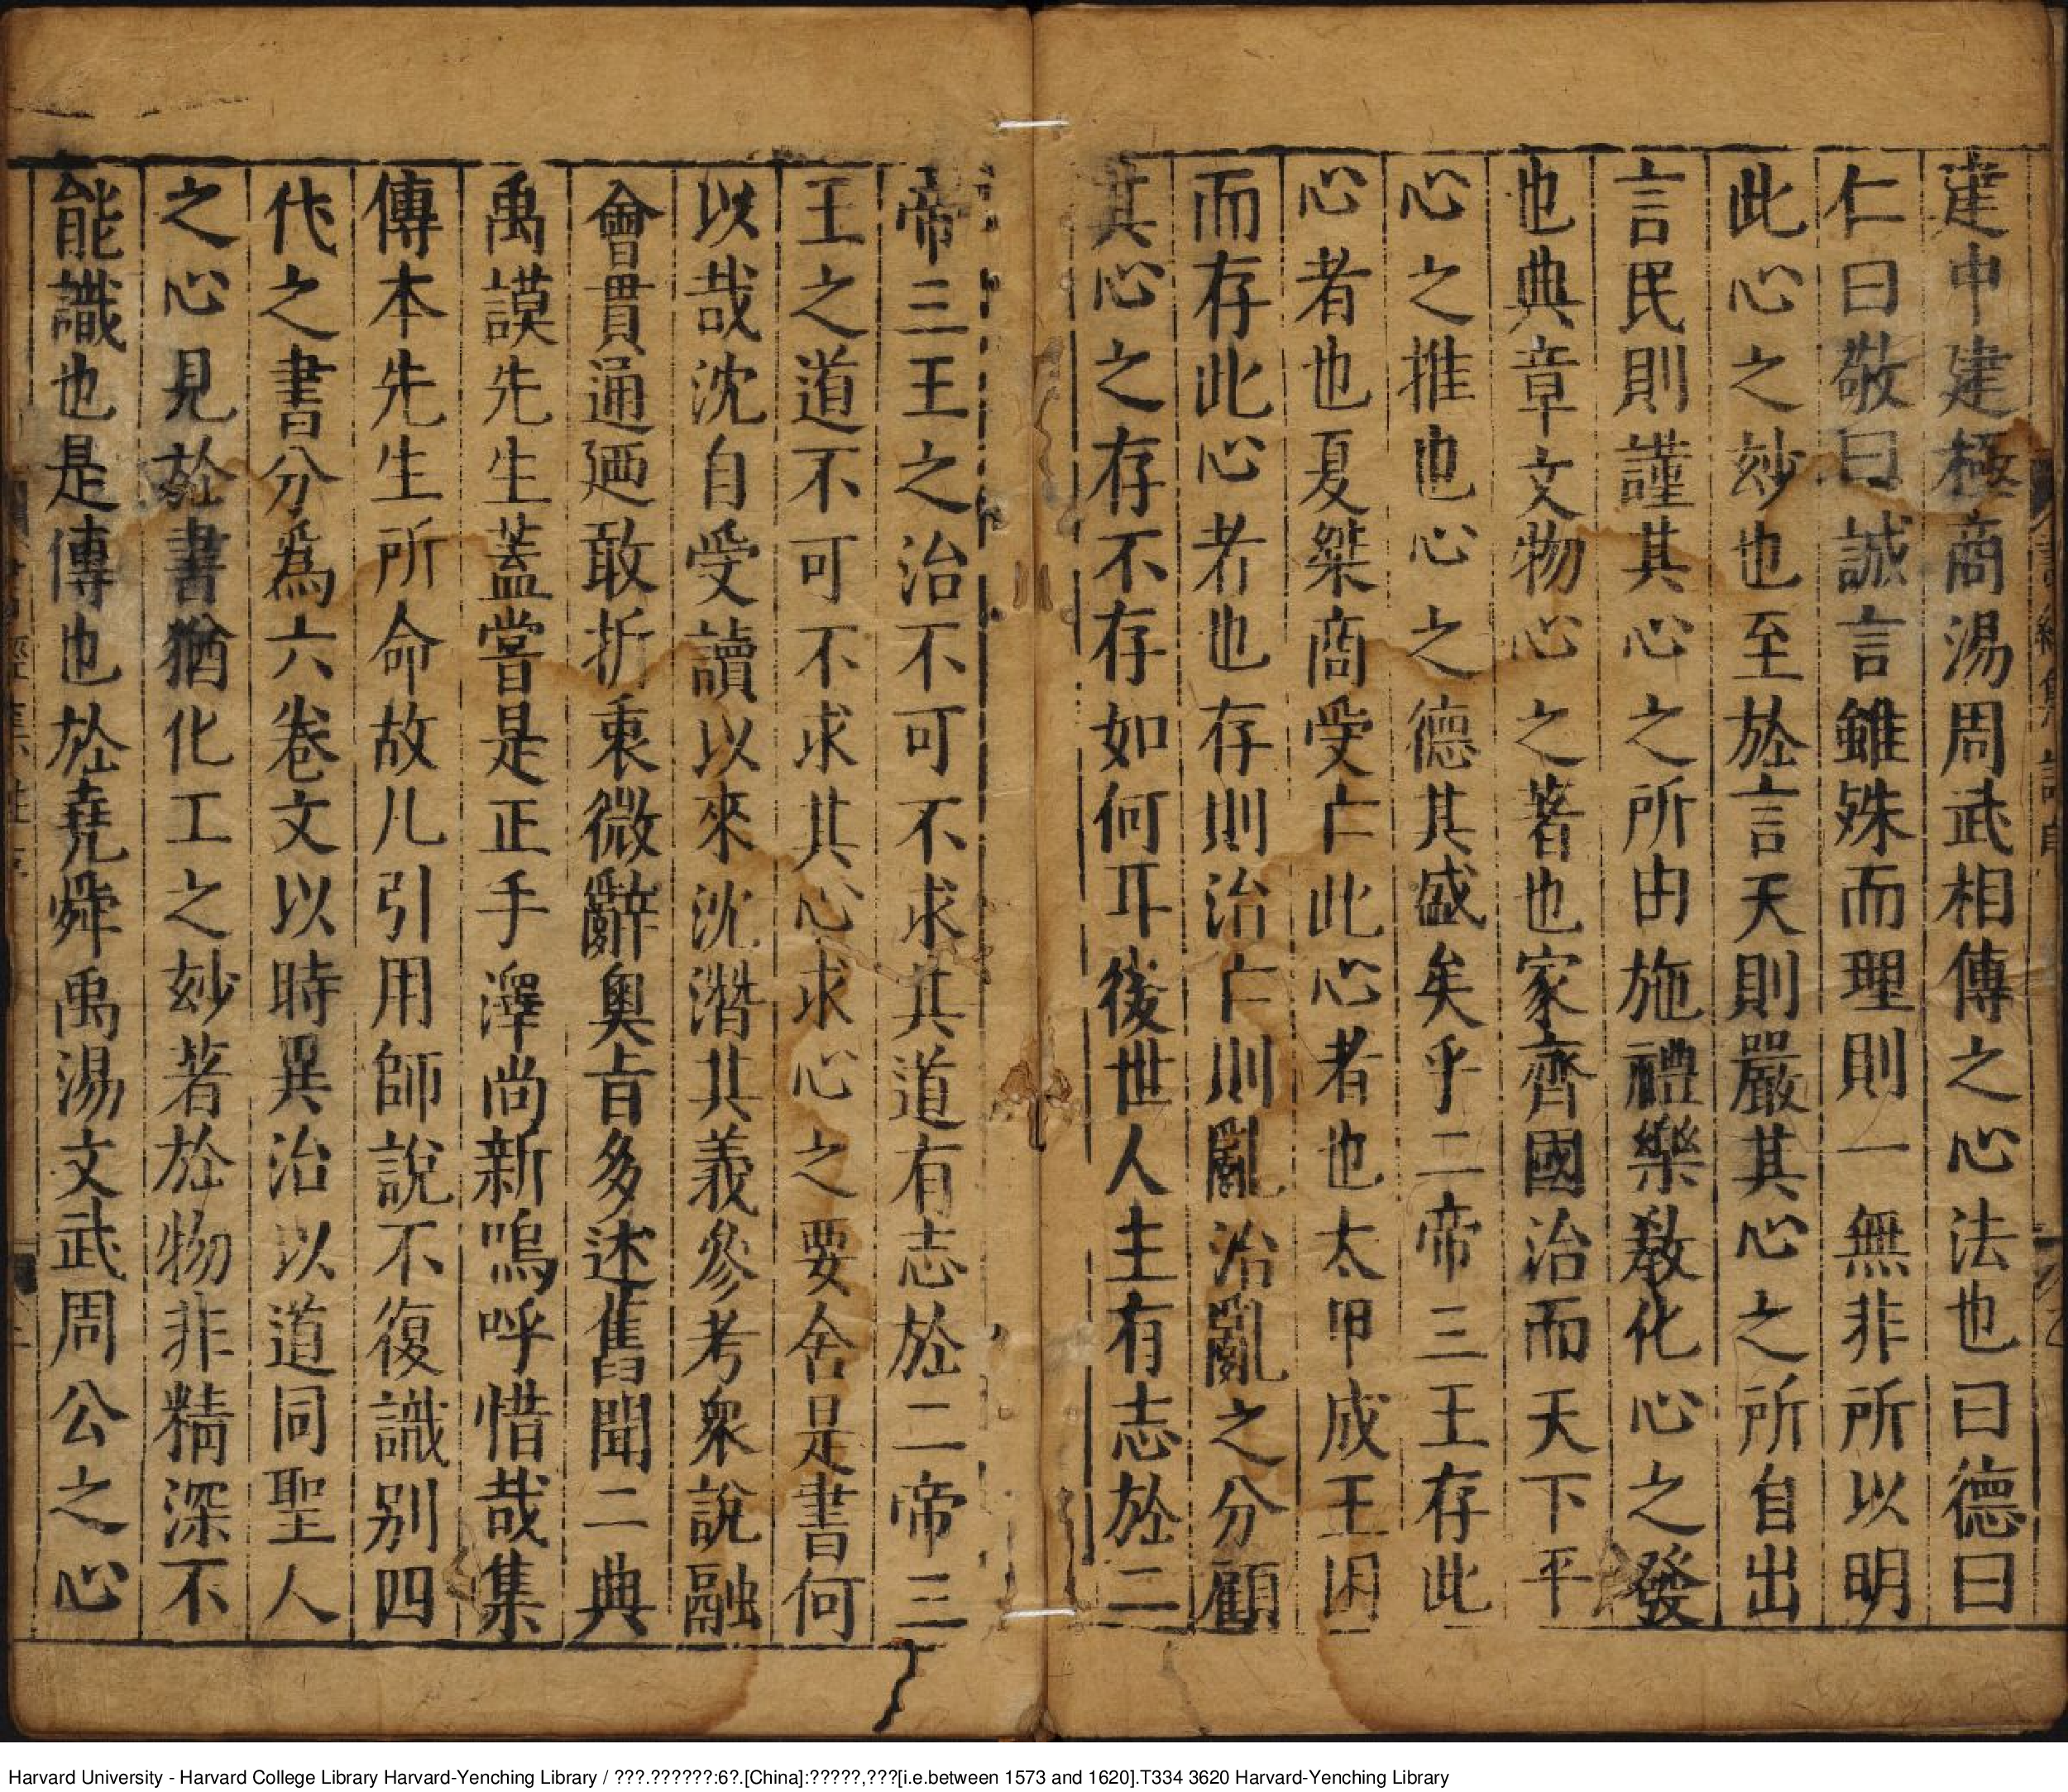 建中建極商湯周武相傳之心法也曰德曰
仁曰敬曰誠言雖殊而理則一無非所以明
此心之玅也至於言天則嚴其心之所自出
言民則謹其心之所由施禮樂敎化心之發
也典章文物心之著也家齊國治而天下平
心之推也心之德其盛矣乎二帝三王存此
心者也夏桀商受亡此心者也太甲成王困
而存此心者也存則治亡則亂治亂之分顧
其心之存不存如何耳後世人主有志於二
帝三王之治不可不求其道有志於二帝三
王之道不可不求其心求心之要舍是書何
以哉沈自受讀以來沈潛其義參考衆說融
會貫通廼敢折衷微辭奥旨多述舊聞二典
禹謨先生蓋嘗是正手澤尚新嗚呼惜哉集
傳本先生所命故凡引用師說不復識别四
代之書分為六卷文以時異治以道同聖人
之心見於書猶化工之玅著於物非精深不
能識也是傳也於堯舜禹湯文武周公之心
Harvard University - Harvard College Library Harvard-Yenching Library / ???.??????:6?.[China]:?????,???[i.e.between 1573 and 1620].T334 3620 Harvard-Yenching Library